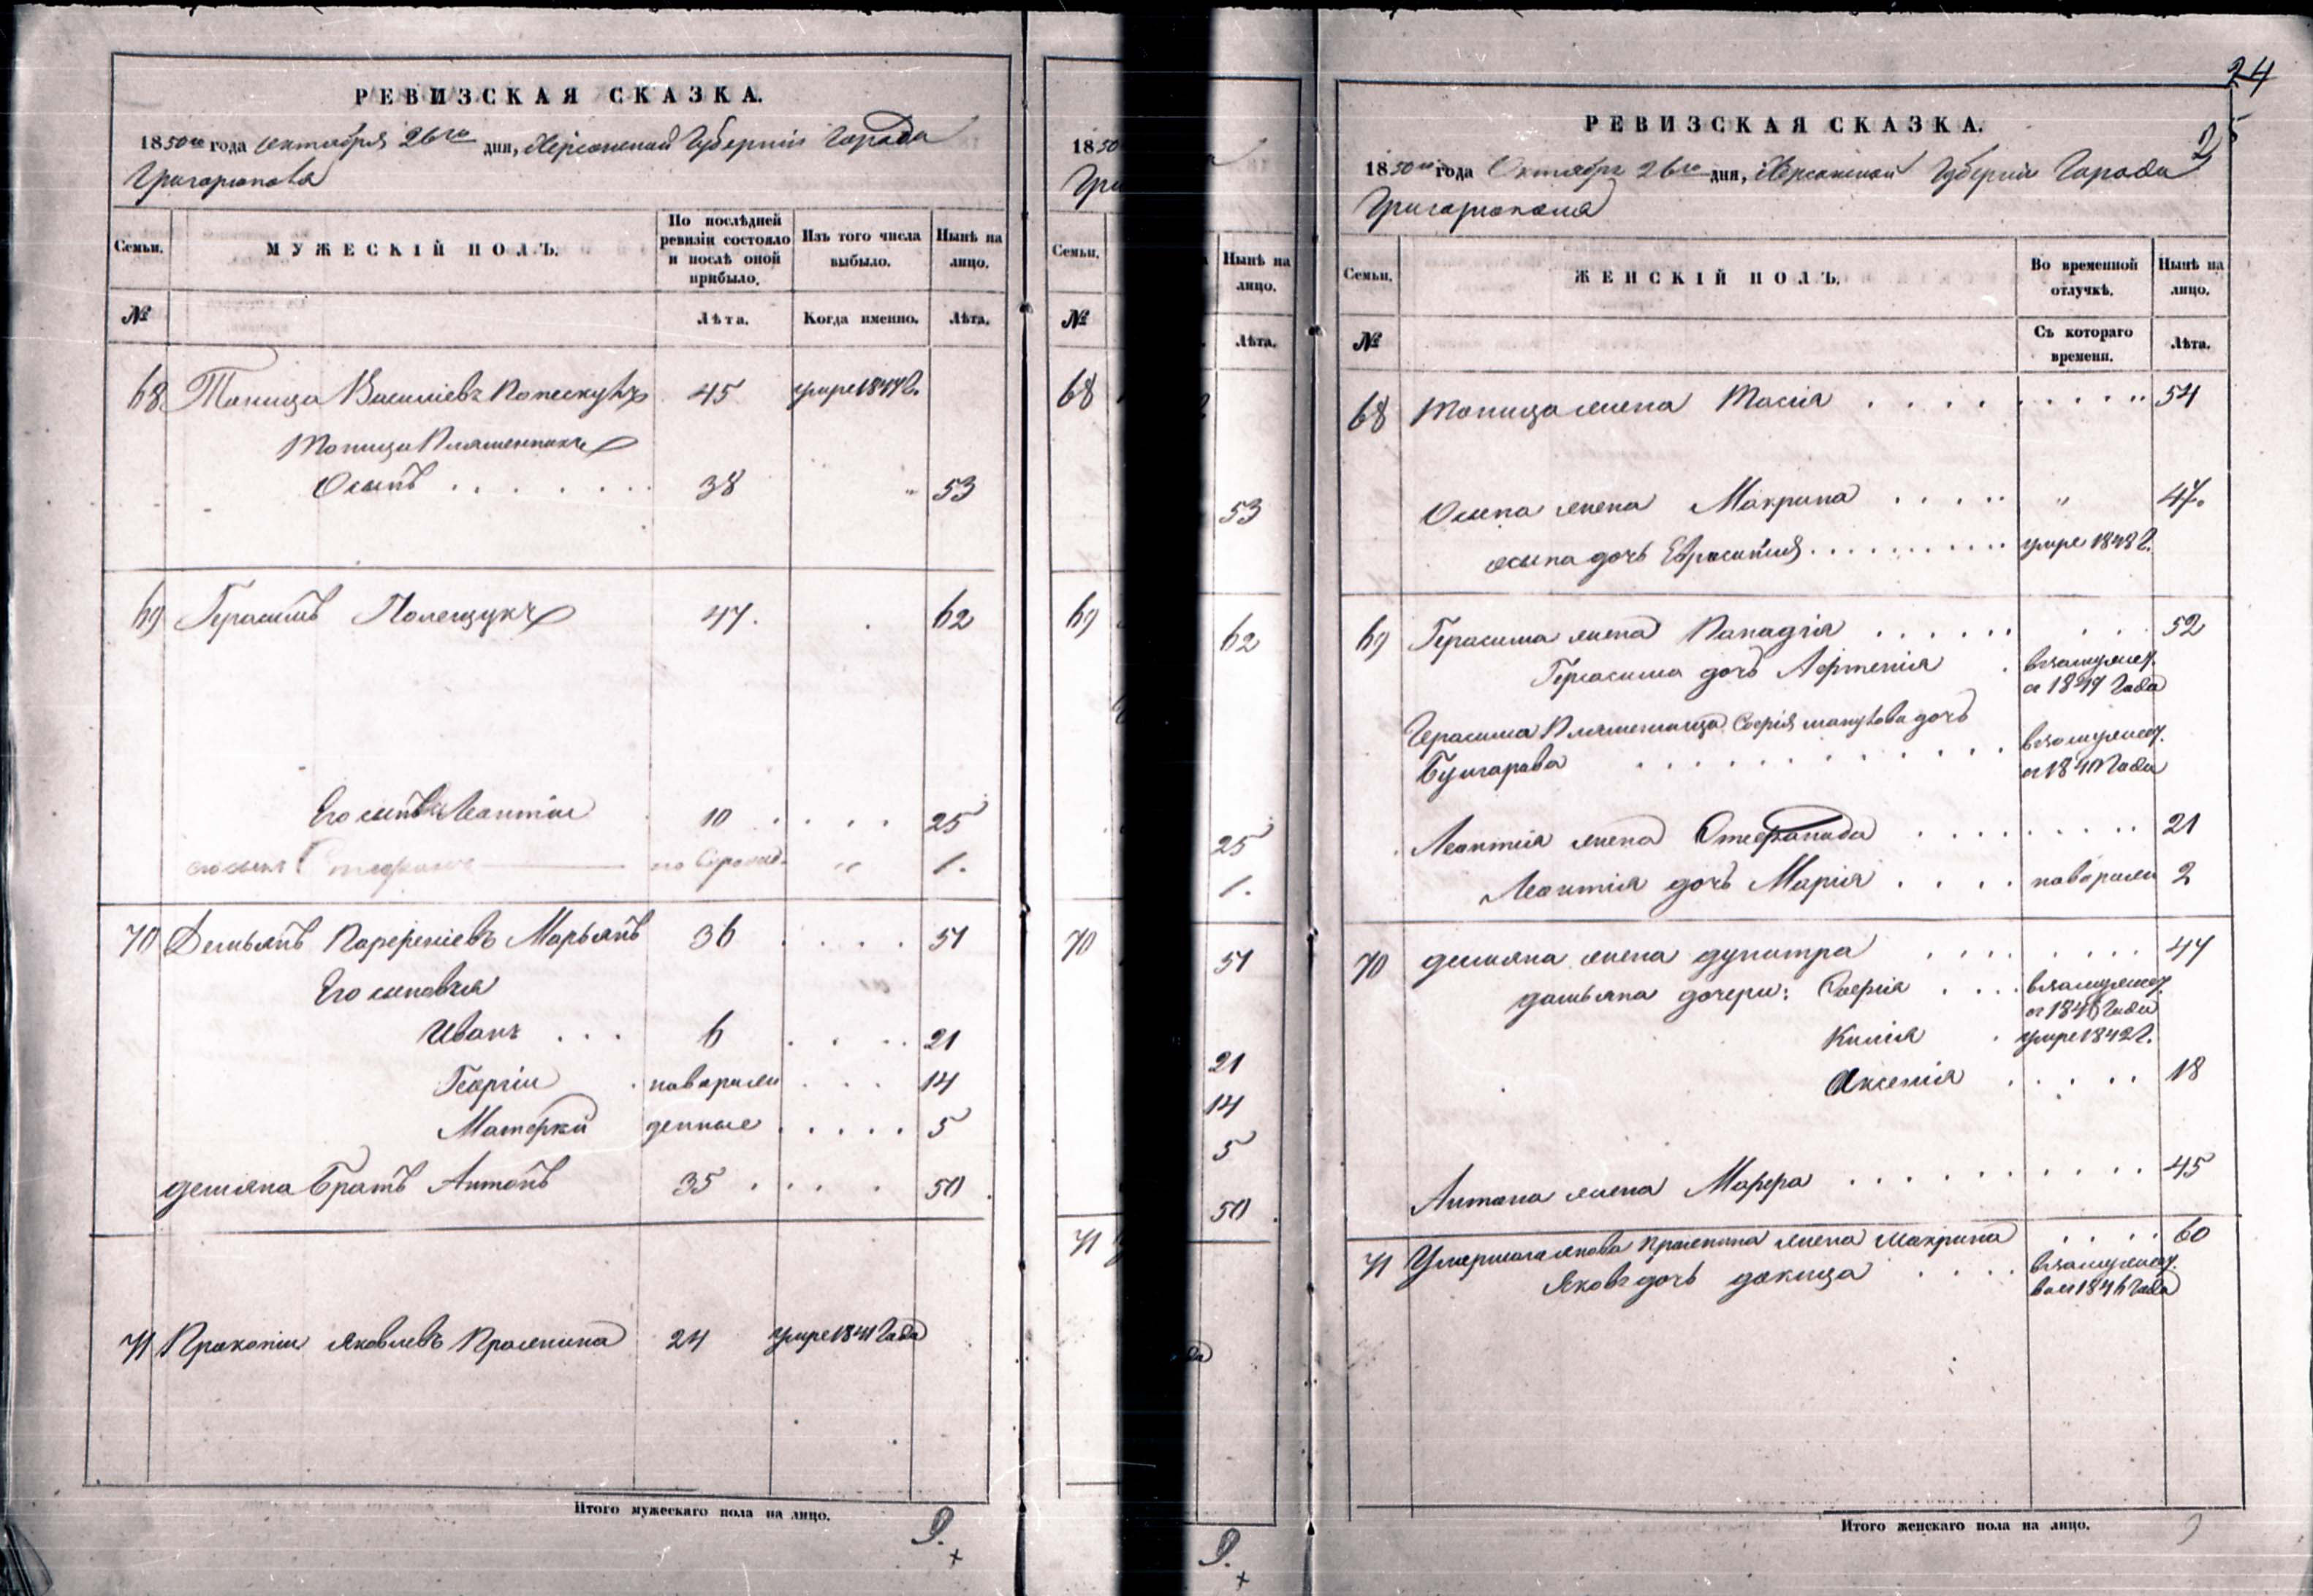 РЕВИЗСКАЯ СКАЗКА.
1850го года октября 26го дня, Херсонской Губернiи Города
Григорiополя
Семьи. МУЖЕСКIЙ ПОЛЪ. По послѣдней ревизiи состояло и послѣ оной прибыло. Изъ того числа выбыло. Нынѣ на лицо.
№ Лѣта. Когда именно. Лѣта.
68 Топица Василiевъ 45 умре 184
Топица Племянникъ
Осипъ 38 " 53
69 Герасимъ Полещукъ 47. 62
Его сынъ Леонтiи 10 25
его сынъ Стефанъ 1.
70 Демьянъ Парфенiевъ Марьянъ 36 51
Его сыновья
Иванъ 6 21
Георгiи новорож 14
Матфей денные 5
демяна Братъ Антонъ 35 50
71 Прокопiи Яковлевъ 24 умре 1841 Года
Итого мужескаго пола на лицо.
9.
+
1850
Гри
Семьи. Нынѣ на лицо.
№ Лѣта.
68
53
69 62
25
1.
70 51
21
14
5
50
71
9.
+
24
25
РЕВИЗСКАЯ СКАЗКА.
1850го года Октября 26го дня, Херсонской Губернiи Города
Григорiополя
Семьи. ЖЕНСКIЙ ПОЛЪ. Во временной отлучкѣ. Нынѣ на лицо.
№ Съ котораго времени. Лѣта.
68 топица жена 54
Осипа жена Макрина " 47.
осипа дочь умре 1843 г.
69 Герасима жена Панагiя 52
Герасима дочъ взамуже
с 1847 Года
Герасима Племянница Софiя дочъ взамуже
с 1840 Года
Леонтiя жена Стефанида 21
Леонтiя дочъ Марiя новорож 2
70 демяна жена думитра 47
дамьяна дочери: Софiя взамуже
с 184 Года
Килiя умре 1842 г.
Аксенiя 18
Антона жена Марфа 45
71 Умершаго якова жена Макрина 60
Яковъ дочь докица взамуже
1846 Года
Итого женскаго пола на лицо.